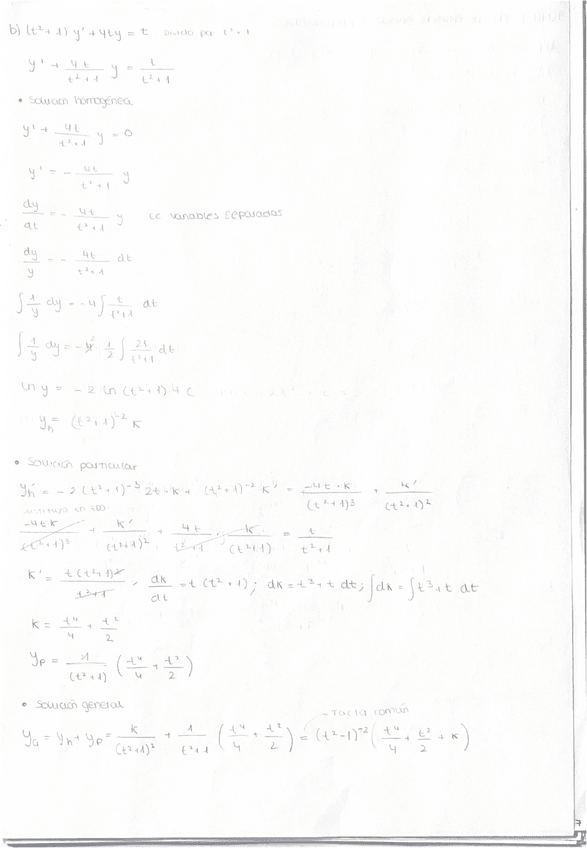 b) (t²+1) y' + 4ty = t divido por t²+1
y' + 4t/(t²+1) y = t/(t²+1)
• Solución homogénea
y' + 4t/(t²+1) y = 0
y' = - 4t/(t²+1) y
dy/dt = - 4t/(t²+1) y EC variables separadas
dy/y = - 4t/(t²+1) dt
∫ 1/y dy = -4 ∫ t/(t²+1) dt
∫ 1/y dy = -4² 1/2 ∫ 2t/(t²+1) dt
ln y = -2 ln (t²+1) + C
y_h = (t²+1)^-2 K
• Solución particular
y_h' = -2 (t²+1)^-3 2t·K + (t²+1)^-2 K' = -4t·K/(t²+1)³ + K'/(t²+1)²
sustituyo en edo
-4tK/(t²+1)³ + K'/(t²+1)² + 4t/(t²+1) · K/(t²+1) = t/(t²+1)
K' = t(t²+1)²/(t²+1), dK/dt = t (t²+1); dK = t³+t dt; ∫dK = ∫t³+t dt
K = t⁴/4 + t²/2
y_p = 1/(t²+1) (t⁴/4 + t²/2)
• Solución general
→ factor común
y_G = y_h + y_p = K/(t²+1)² + 1/(t²+1) (t⁴/4 + t²/2) = (t²-1)^-2 (t⁴/4 + t²/2 + K)
7